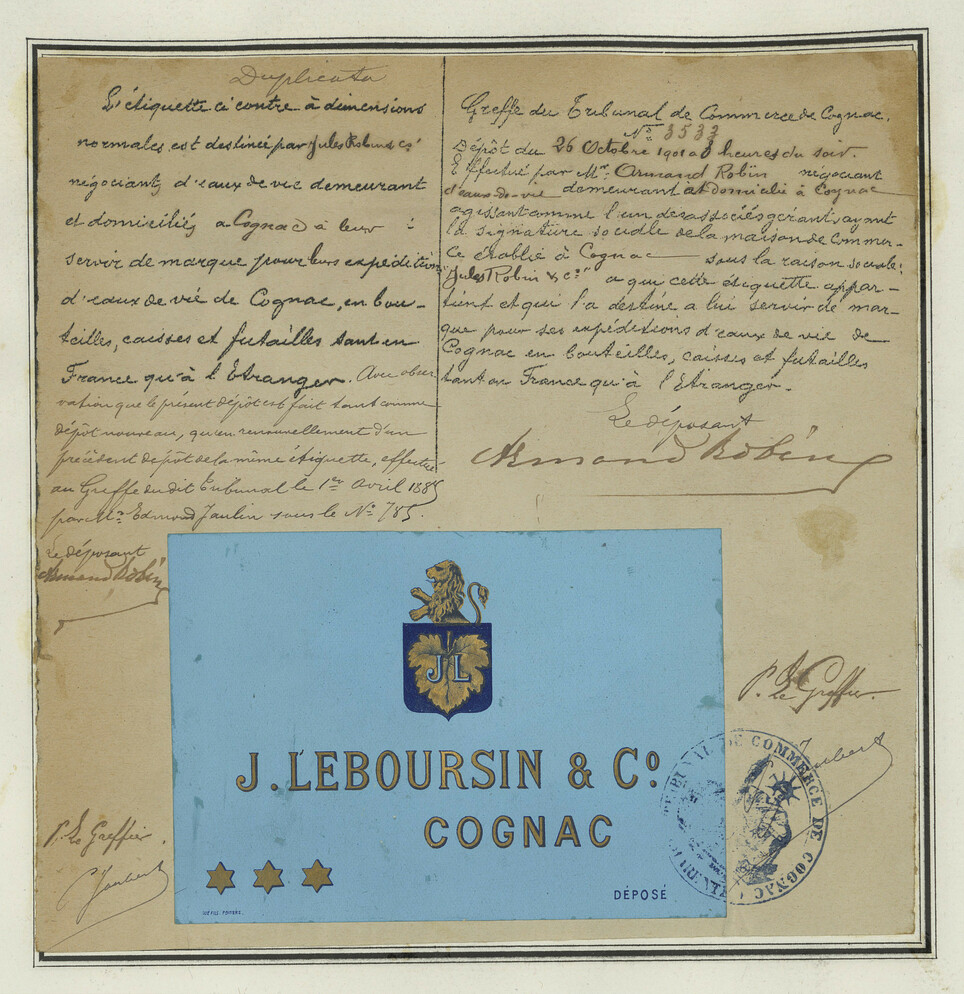 Duplicata
L'étiquette ci contre à dimensions
normales, est destinée par Jules Robin & Cº
négociants d'eaux de vie demeurant
et domiciliés a Cognac à leur
servir de marque pour leurs expéditions
d'eaux de vie de Cognac, en bou-
teilles, caisses et futailles tant en
France qu'à l'Etranger. Avec obser
vation que le présent dépôt est fait tant comme
dépôt nouveau, qu'en renouvellement d'un
précédent dépôt de la même étiquette, effectué
au Greffe du dit Tribunal le 1er Avril 1885
par Mr Edmond Jaulin sous le Nº 785.
Le déposant
Armand Robin
Greffe du Tribunal de Commerce de Cognac.
Nº 3533
Dépôt du 26 Octobre 1901 à 3 heures du soir.
Effectué par Mr Armand Robin négociant
d'eaux-de-vie demeurant et domicilié à Cognac
agissant comme l'un des associés gérants, ayant
la signature sociale de la maison de Commer-
ce établie à Cognac sous la raison sociale:
"Jules Robin & Cº" a qui cette étiquette appar-
tient et qui l'a destiné a lui servir de mar-
que pour ses expéditions d'eaux de vie de
Cognac en bouteilles, caisses et futailles
tant en France qu'à l'Etranger.
Le déposant
Armand Robin
P. Le Greffier.
Joubert
JL
J. LEBOURSIN & Cº
COGNAC
DÉPOSÉ
TRIBUNAL DE COMMERCE DE COGNAC
P. Le Greffier.
Joubert